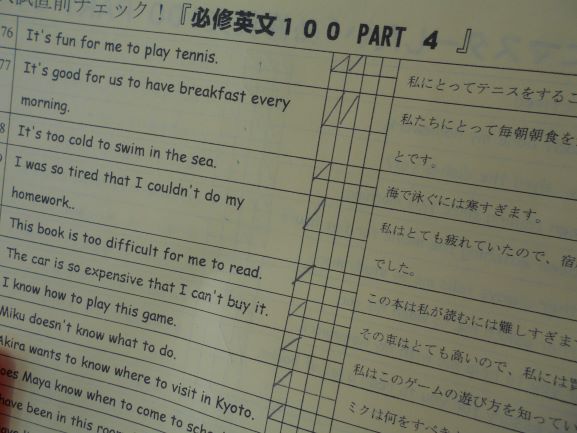 試直前チェック！『必修英文１００ PART ４ 』
76 It's fun for me to play tennis.
私にとってテニスをするこ
77 It's good for us to have breakfast every
morning.
私たちにとって毎朝朝食を
とです。
8 It's too cold to swim in the sea.
海で泳ぐには寒すぎます。
9 I was so tired that I couldn't do my
homework..
私はとても疲れていたので、宿
でした。
This book is too difficult for me to read.
この本は私が読むには難しすぎます
The car is so expensive that I can't buy it.
その車はとても高いので、私には買
I know how to play this game.
私はこのゲームの遊び方を知ってい
Miku doesn't know what to do.
ミクは何をすべき
Akira wants to know where to visit in Kyoto.
oes Maya know when to come to scho
have been in this room